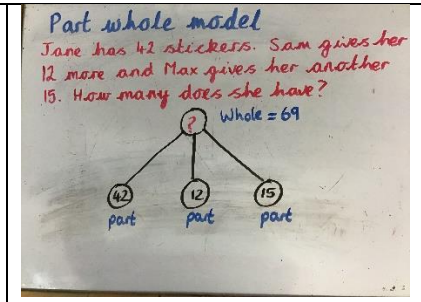 Part whole model
Jane has 42 stickers. Sam gives her
12 more and Max gives her another
15. How many does she have?
? Whole = 69
42 12 15
part part part